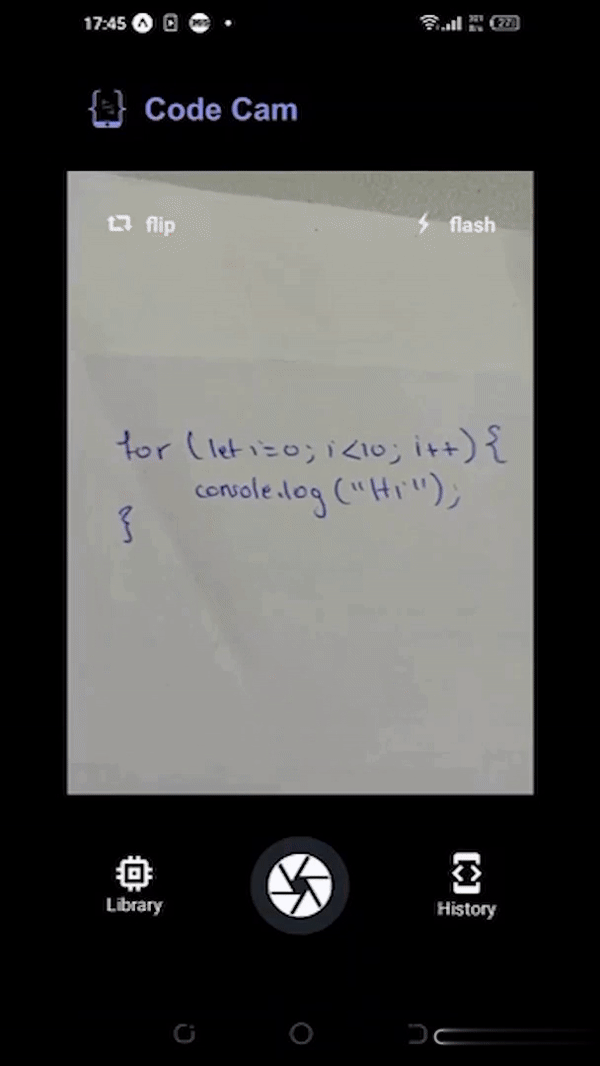 17:45
Code Cam
flip
flash
for (let i=0; i<10; i++){
console.log("Hi");
}
Library
History